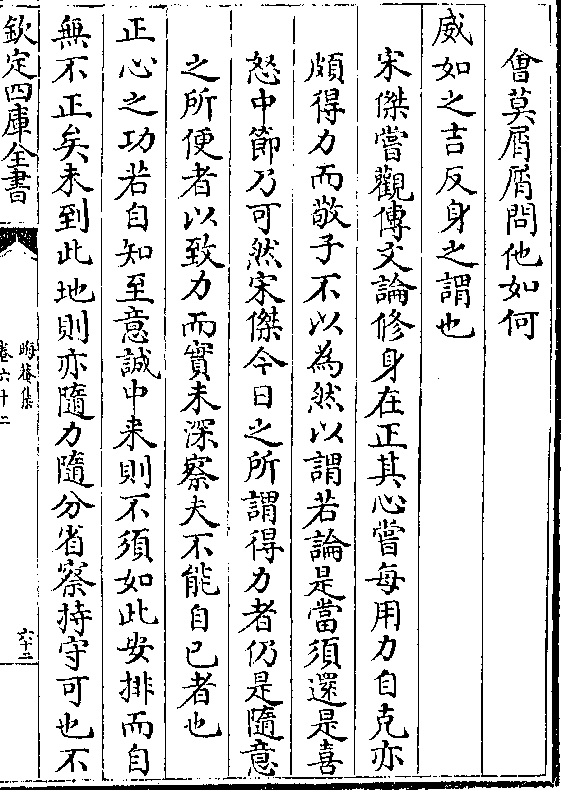 會莫屑屑問他如何
威如之吉反身之謂也
宋傑嘗觀傳文論修身在正其心嘗每用力自克亦
頗得力而敬子不以為然以謂若論是當須還是喜
怒中節乃可然宋傑今日之所謂得力者仍是隨意
之所便者以致力而實未深察夫不能自已者也
正心之功若自知至意誠中来則不須如此安排而自
無不正矣未到此地則亦隨力隨分省察持守可也不
欽定四庫全書
晦菴集
卷六十二
六十二